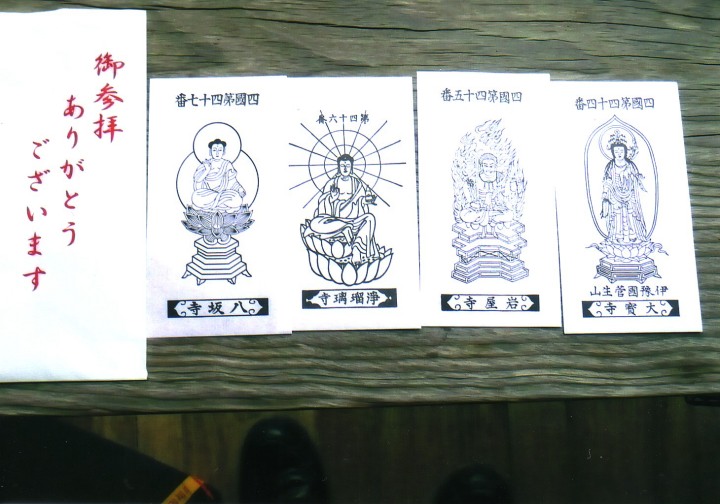 御参拝
ありがとう
ございます
四國第四十七番
八坂寺
第四十六番
淨瑠璃寺
四國第四十五番
岩屋寺
四國第四十四番
伊豫國菅生山
大寶寺